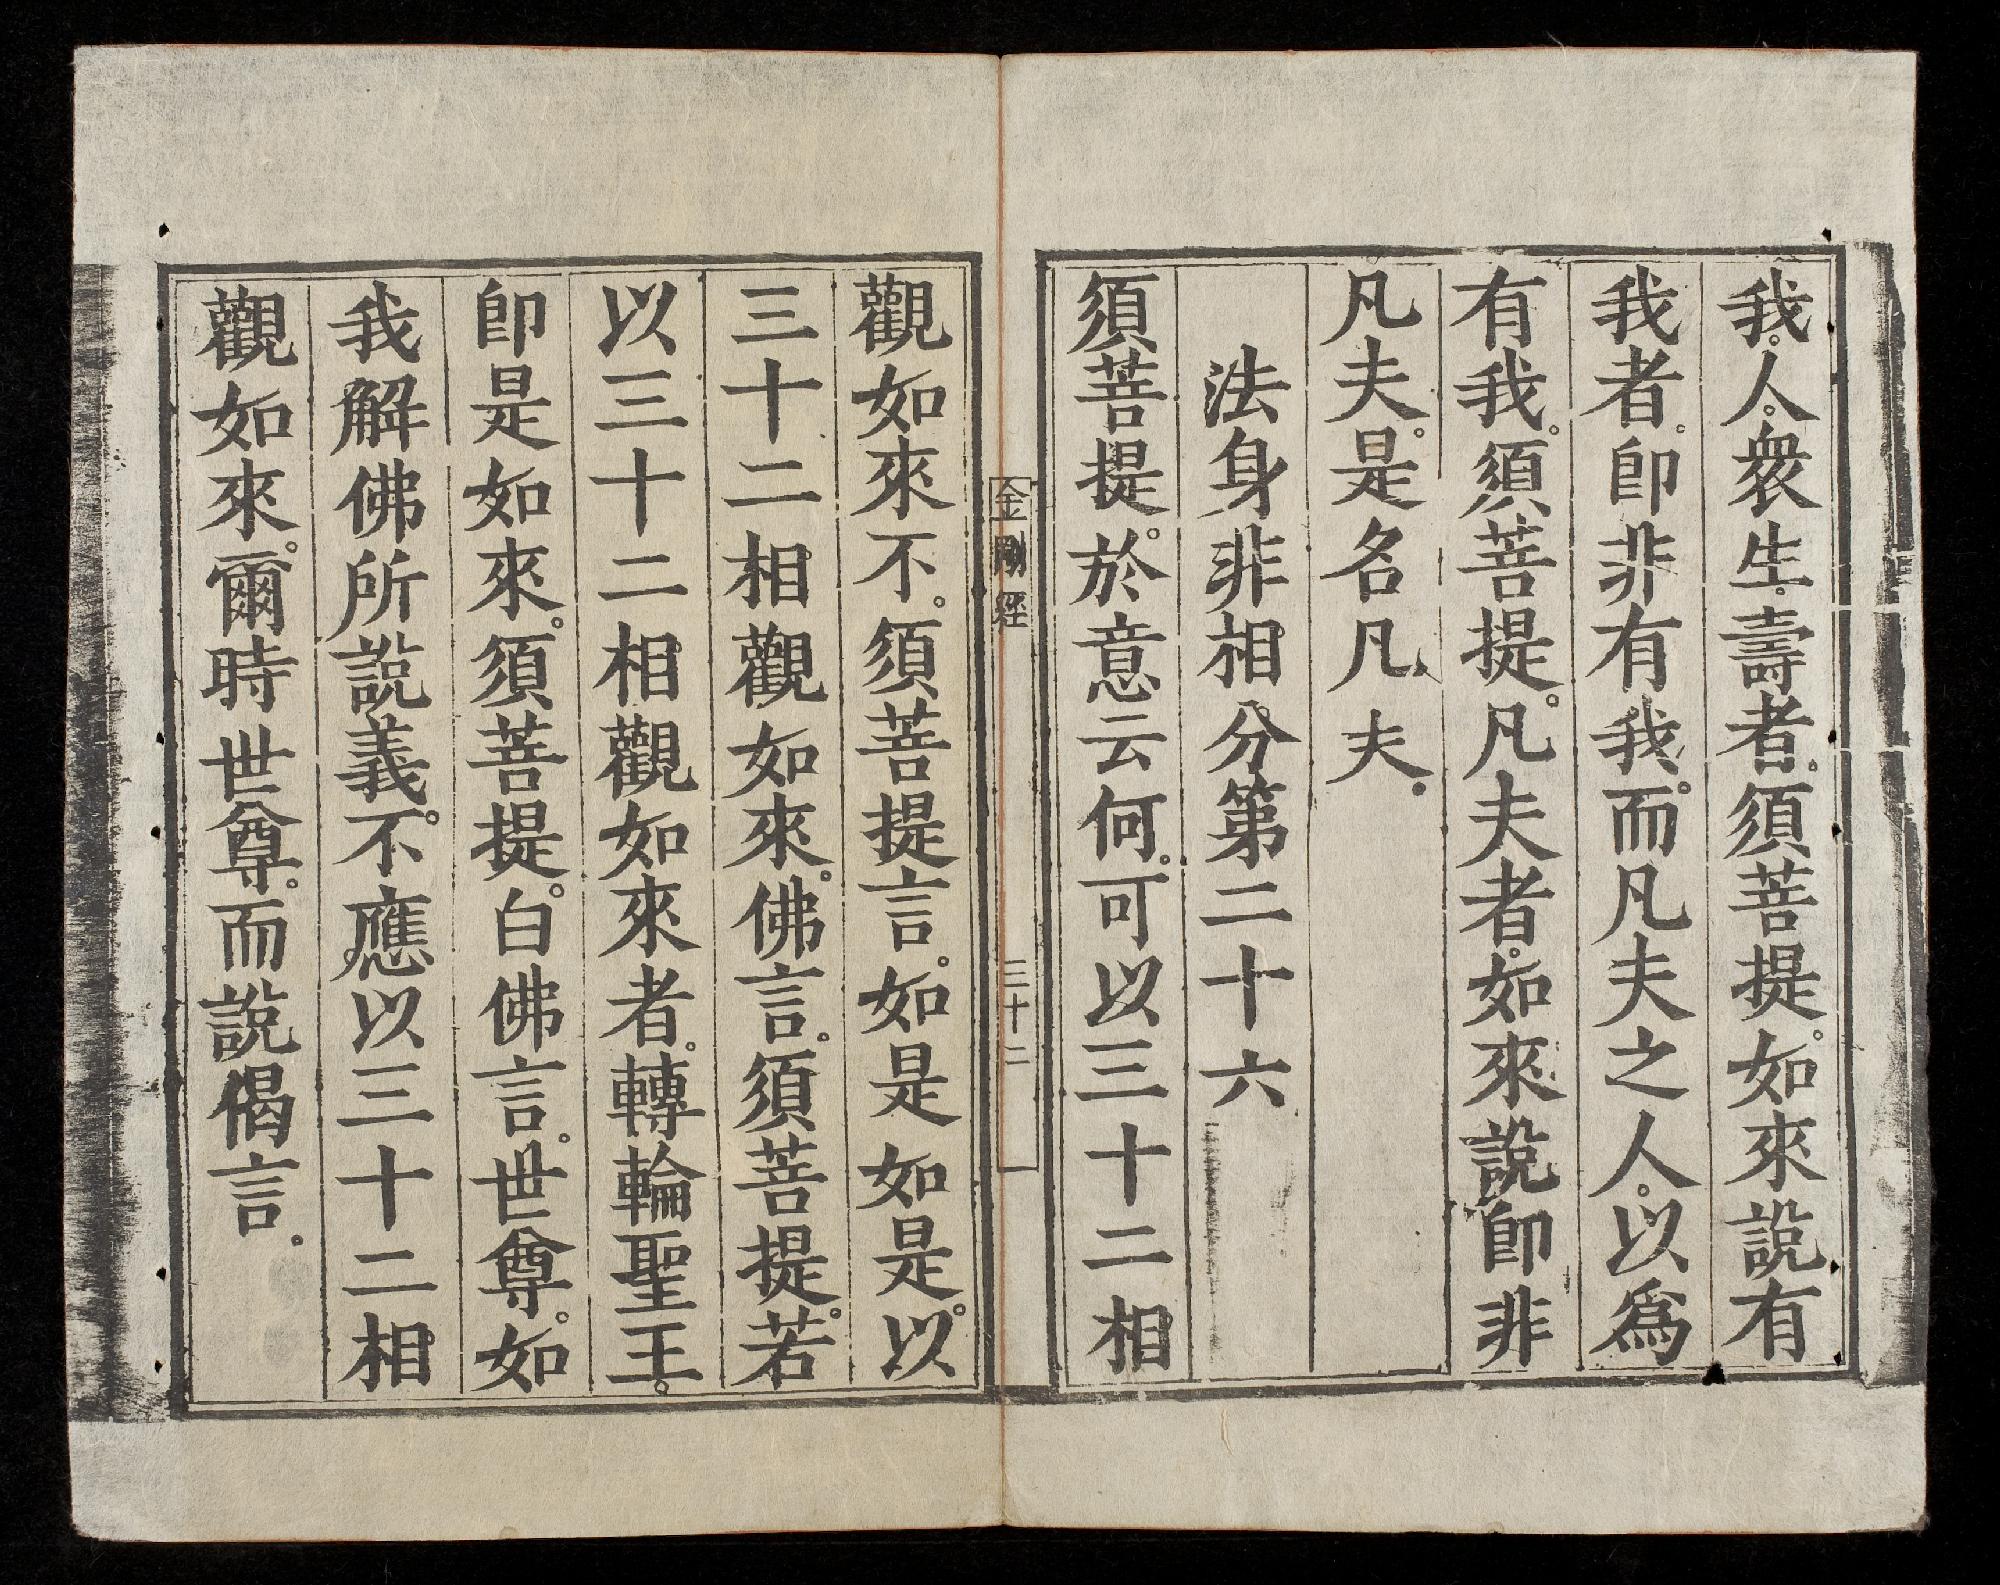 我。人。衆生。壽者。須菩提。如來說有
我者。卽非有我。而凡夫之人。以爲
有我。須菩提。凡夫者。如來說卽非
凡夫。是名凡夫。
法身非相分第二十六
須菩提。於意云何。可以三十二相
金剛經
三十二
觀如來不。須菩提言。如是如是。以
三十二相觀如來。佛言。須菩提。若
以三十二相觀如來者。轉輪聖王。
卽是如來。須菩提。白佛言。世尊。如
我解佛所說義。不應以三十二相
觀如來。爾時世尊。而說偈言。